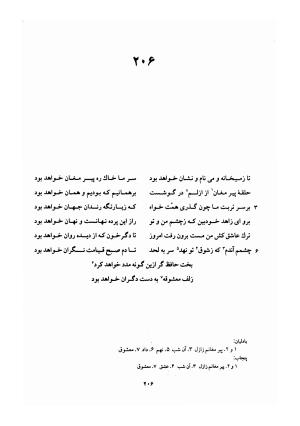 ۲۰۶
تا زمیخانه و می نام و نشان خواهد بود    سر ما خاک ره پیر مغان خواهد بود
حلقهٔ پیر مغان¹ از ازلم² در گوشست    برهمانیم که بودیم و همان خواهد بود
۳ برسر تربت ما چون گذری همّت خواه    که زیارتگه رندان جهان خواهد بود
برو ای زاهد خودبین که زچشم من و تو    راز این پرده نهانست و نهان خواهد بود
ترك عاشق کش من مست برون رفت امروز    تا دگرخون که از دیده روان خواهد بود
۶ چشمم آندم³ که زشوق⁴ تو نهد⁵ سر به لحد    تا دم صبح قیامت نگران خواهد بود
بخت حافظ گر ازین گونه مدد خواهد کرد⁶
زلف معشوقه⁷ به دست دگران خواهد بود
بادلیان:
۱ و ۲. پیر مغانم زازل ۳. آن شب ۵. نهم ۶. داد ۷. معشوق
پنجاب:
۱ و ۲. پیر مغانم زازل ۳. آن شب ۴. عشق ۷. معشوق
۲۰۶